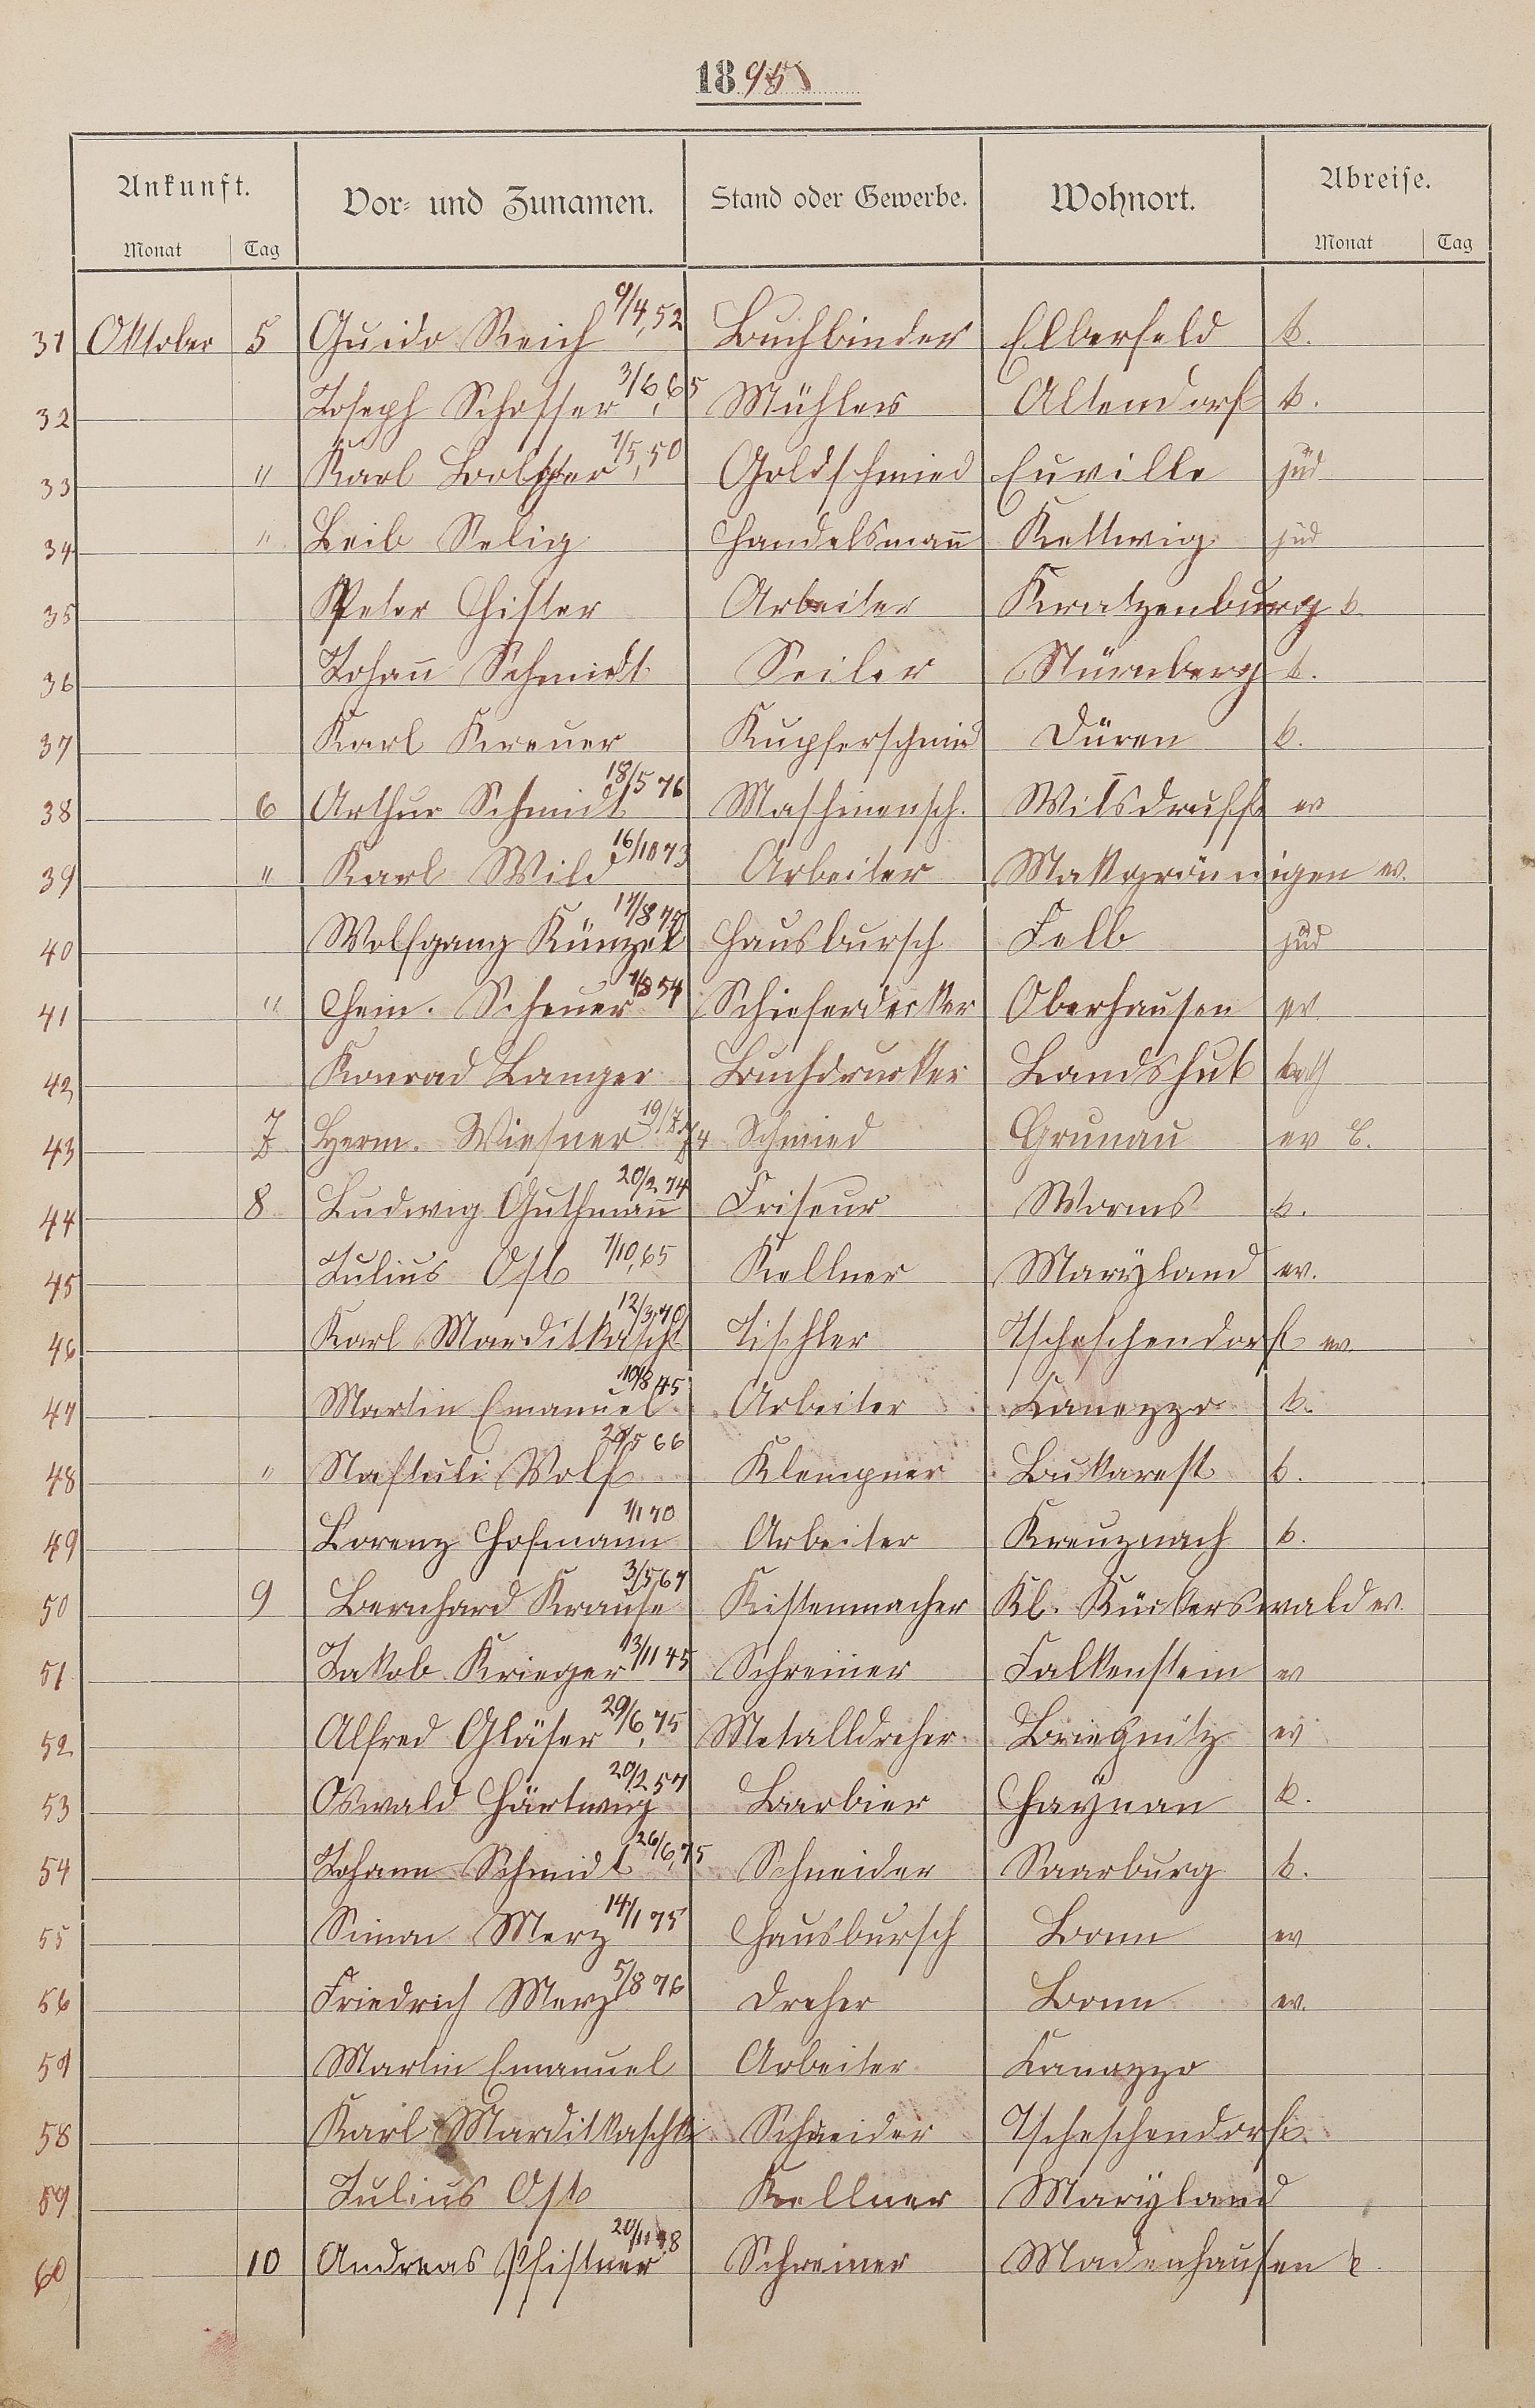 1895
Ankunft. Vor- und Zunamen. Stand oder Gewerbe. Wohnort. Abreise.
Monat Tag Monat Tag
31 Oktober 5 Guido Reich 9/4, 52 Buchbinder Elberfeld k.
32 Joseph Schosser 3/6, 65 Mühlers Altendorf k.
33 " Karl 1/5, 50 Goldschmied Euville jüd
34 " Leib Selig Handelsmann̄ Kettwig jüd
35 Peter Hister Arbeiter Kratzenburg k.
36 Johan̄ Schmidt Seiler Nürnberg k.
37 Karl Kreuer Kupferschmied Düren k.
38 6 Arthur Schmidt 18/5 76 Maschinensch. Wilsdruff ev
39 " Karl Wild 16/10 73 Arbeiter Makgröningen ev.
40 Wolfgang Künzel 17/8 Hausbursch Selb jüd
41 " Hein. Scheuer 1/8 54 Schieferdecker Oberhausen ev.
42 Konrad Langer Buchdrucker Landshut kath
43 7 Herm. Wiesner 19/7 74 Schmied Grunau ev k.
44 8 Ludwig Guthman̄ 20/2 74 Friseur Worms k.
45 Julius Ost 1/10, 65 Kellner Maryland ev.
46 Karl Marditkaschk 12/3 70 Tischler Tscheschendorf ev
47 Martin Emanuel 10/8 45 Arbeiter Kanozzo k.
48 " Naftuli Wolf 28/5 66 Klempner Bukarest k.
49 Lorenz Hofmann 1/1 70 Arbeiter Kreuznach k.
50 9 Bernhard Krause 3/5 67 Kistenmacher Kl. Rückerswald ev.
51 Jakob Krieger 13/11 45 Schreiner Falkenstein ev
52 Alfred Gläser 29/6, 75 Metalldreher Brießnitz ev
53 Oswald Härtwig 20/2 57 Barbier Haynau k.
54 Johann Schmidt 26/6, 75 Schneider Saarburg k.
55 Simon Merz 14/1 75 Hausbursch Bonn ev
56 Friedrich Merz 5/8 76 Dreher Bonn ev.
57 Martin Emanuel Arbeiter Kanozzo
58 Karl Marditkaschk Schneider Tscheschendorf
59 Julius Ost Kellner Maryland
60 10 Andreas Pfistner 20/11 48 Schreiner Madenhausen k.